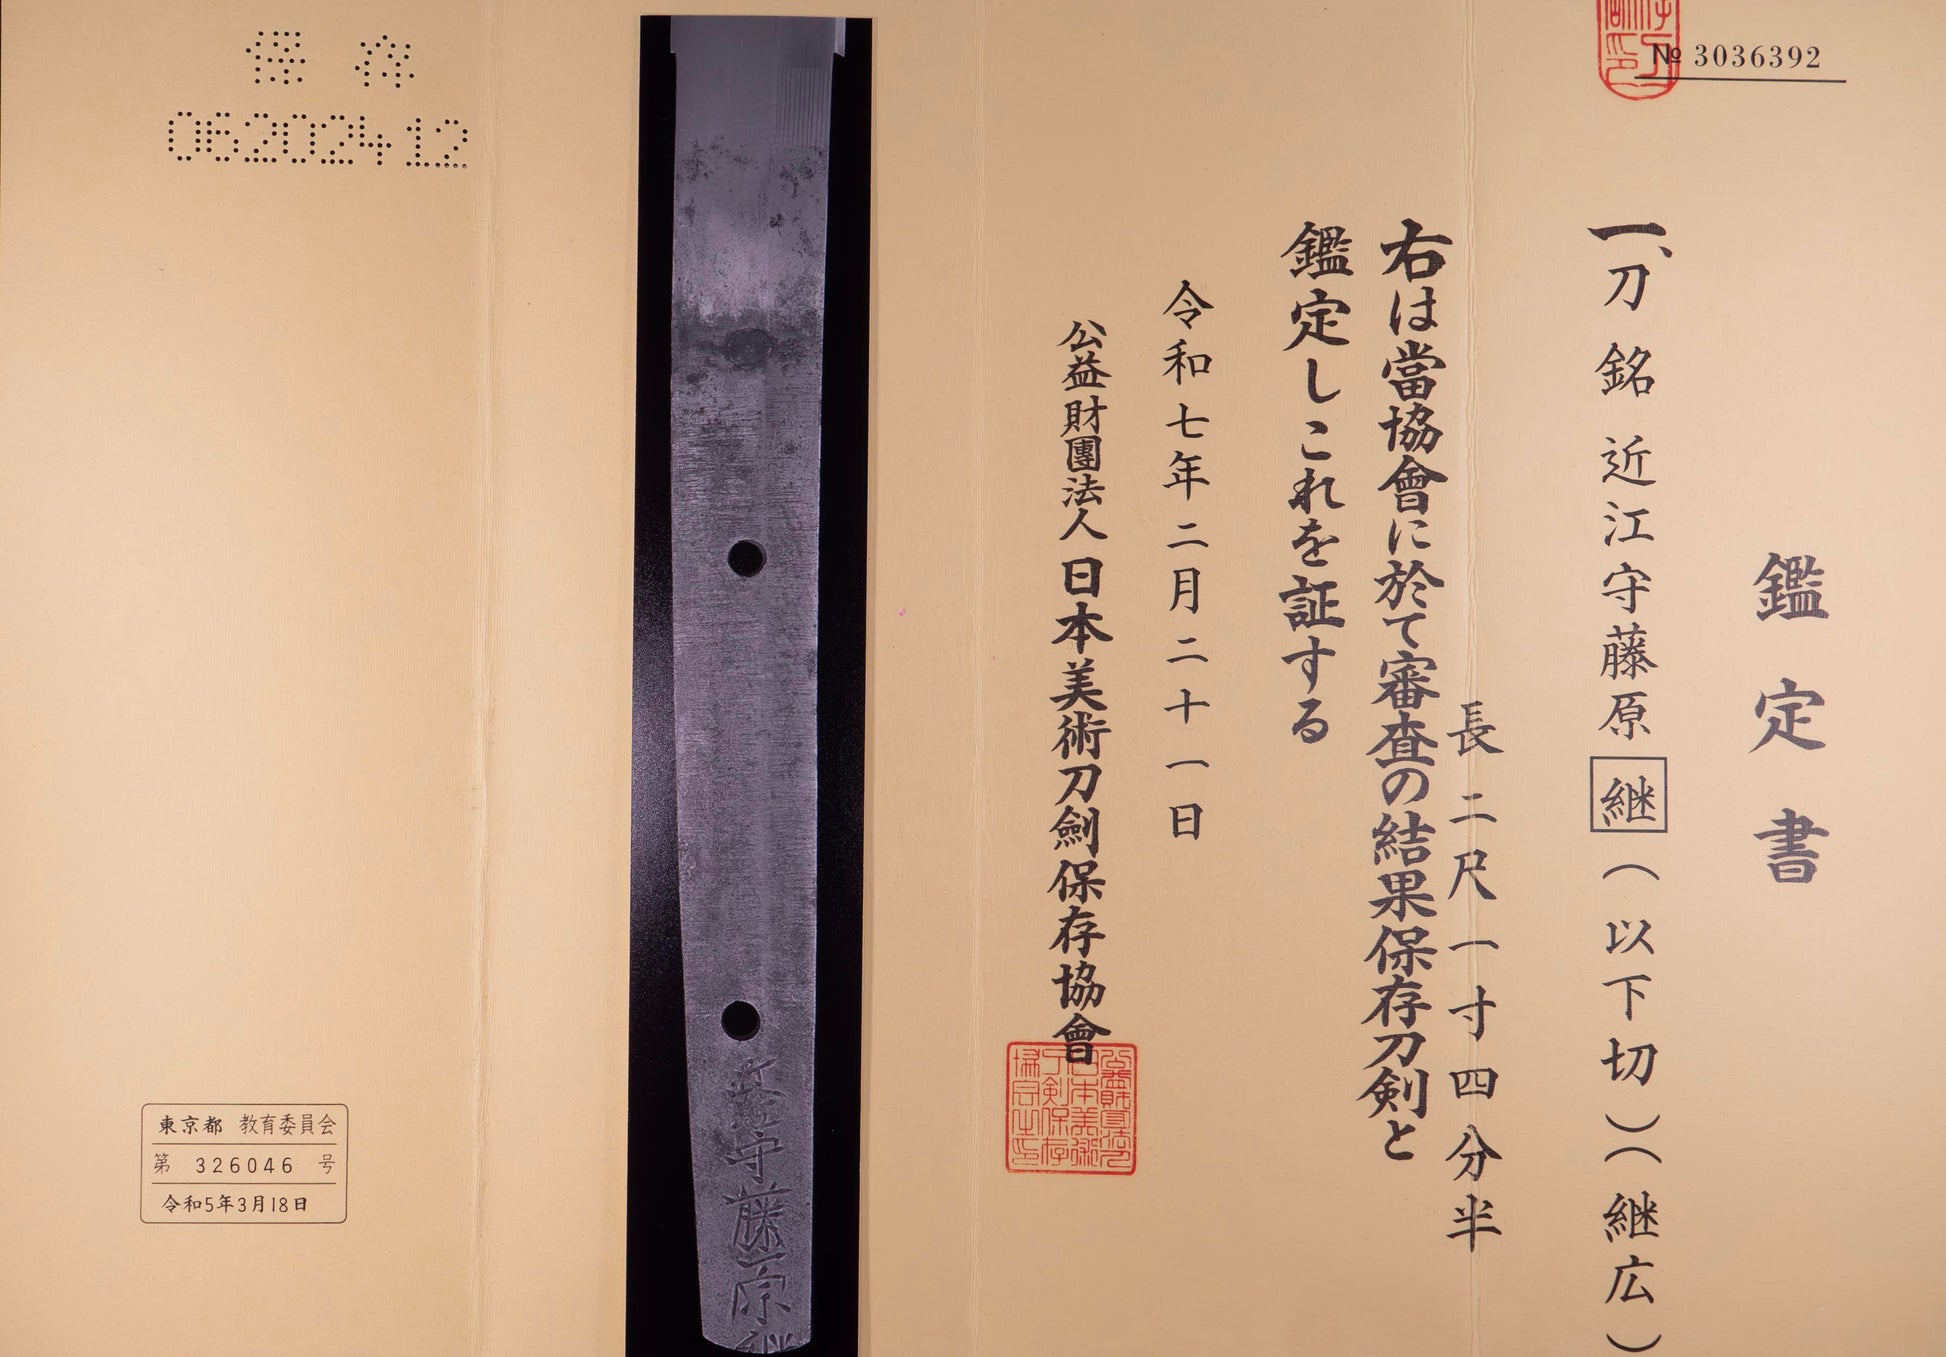 № 3036392
鑑定書
一、刀 銘 近江守藤原継(以下切)(継広)
長二尺一寸四分半
右は當協會に於て審査の結果保存刀剣と
鑑定しこれを証する
令和七年二月二十一日
公益財團法人日本美術刀劍保存協會
近江守藤原継
保存
06202412
東京都 教育委員会
第 326046 号
令和5年3月18日